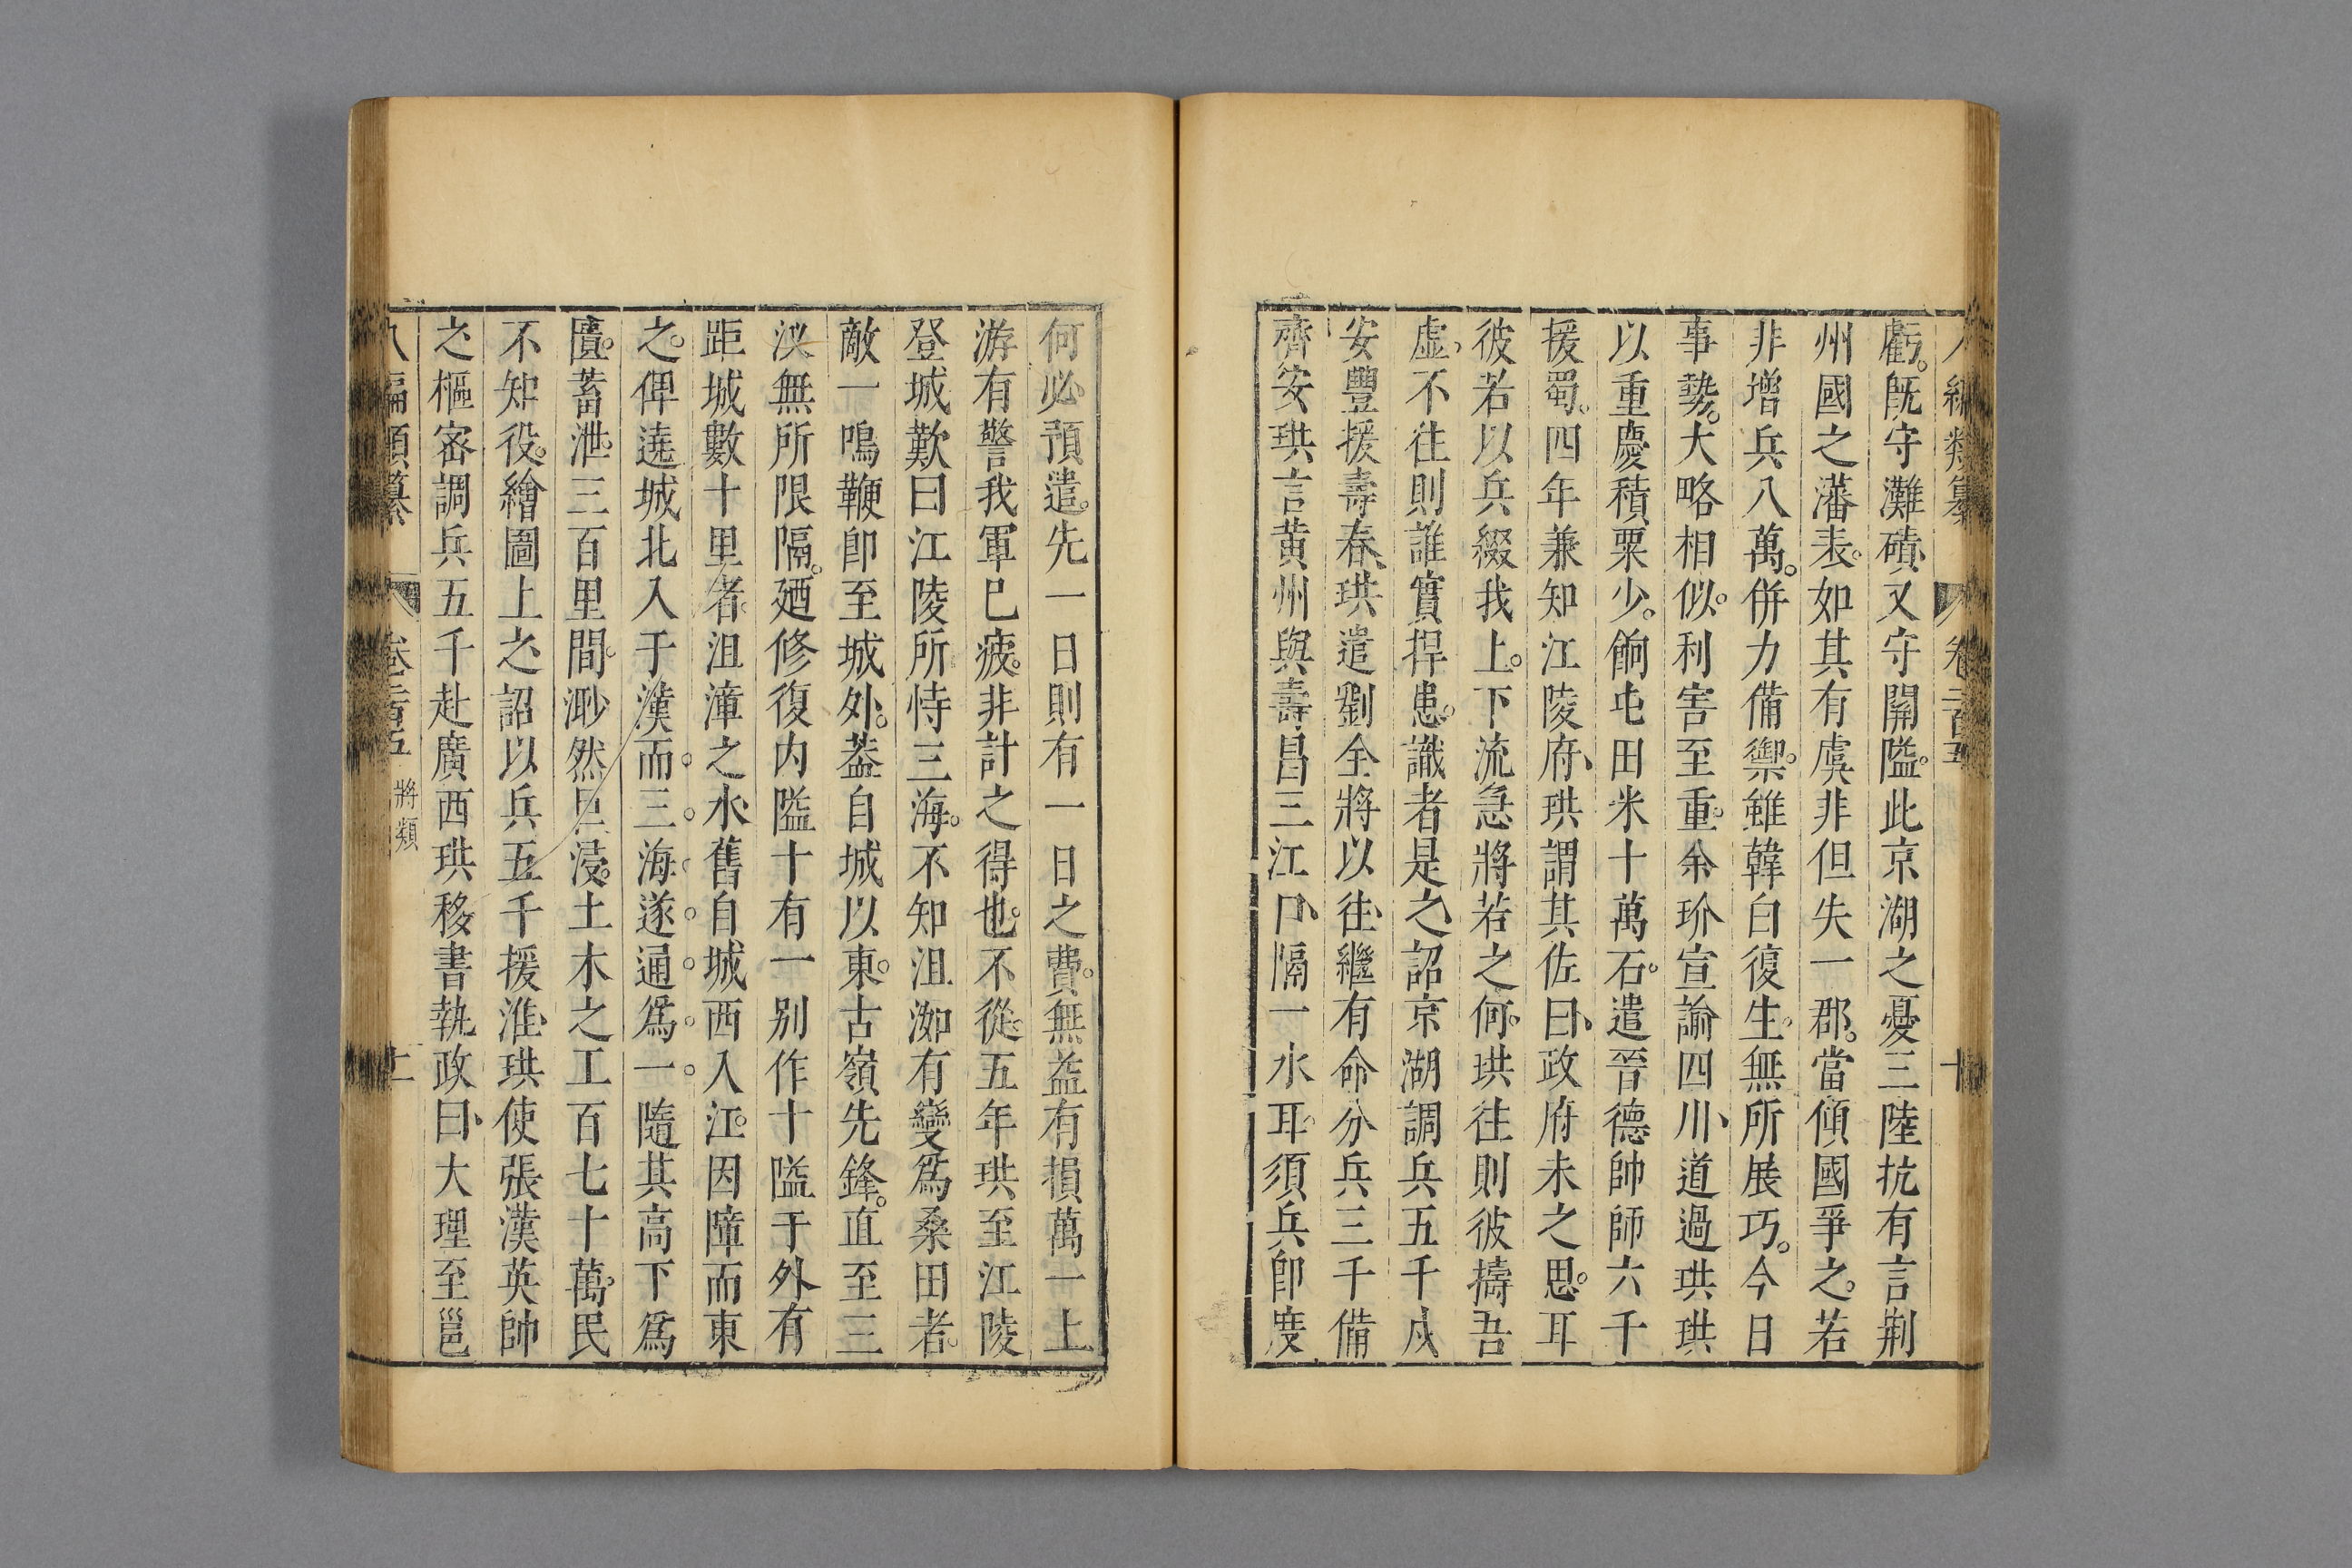 八編類纂 卷二百五 十
虧。旣守灘磧、又守關隘。此京湖之憂三。陸抗有言荆
州國之藩表。如其有虞非但失一郡。當傾國爭之。若
非增兵八萬。併力備禦。雖韓白復生。無所展巧。今日
事勢。大略相似。利害至重。余玠宣諭四川、道過珙珙
以重慶積粟少。餉屯田米十萬石。遣晉德帥師六千
援蜀。四年兼知江陵府、珙謂其佐曰、政府未之思。耳
彼若以兵綴我上。下流急將若之何。珙往則彼擣吾
虛、不往則誰實捍患。識者是之、詔京湖調兵五千戍
安豐援壽春、珙遣劉全將以往、繼有命分兵三千備
齊安珙言黃州與壽昌三江口、隔一水耳。須兵卽度
何必預遣。先一日則有一日之費。無益有損萬一上
游有警我軍已疲。非計之得也。不從。五年珙至江陵
登城歎曰江陵所恃三海。不知沮洳有變爲桑田者。
敵一鳴鞭卽至城外。葢自城以東。古嶺先鋒。直至三
汊無所限隔。廼修復内隘十有一别作十隘于外有
距城數十里者。沮漳之水、舊自城西入江。因障而東
之。俾遶城北入于漢而。三。海。遂。通。爲。一。隨其高下爲
匱。蓄泄。三百里間。渺然巨浸。土木之工百七十萬。民
不知役。繪圖上之、詔以兵五千援淮、珙使張漢英帥
之樞密調兵五千赴廣西珙移書執政曰、大理至邕
八編類纂 卷二百五 將類 十一